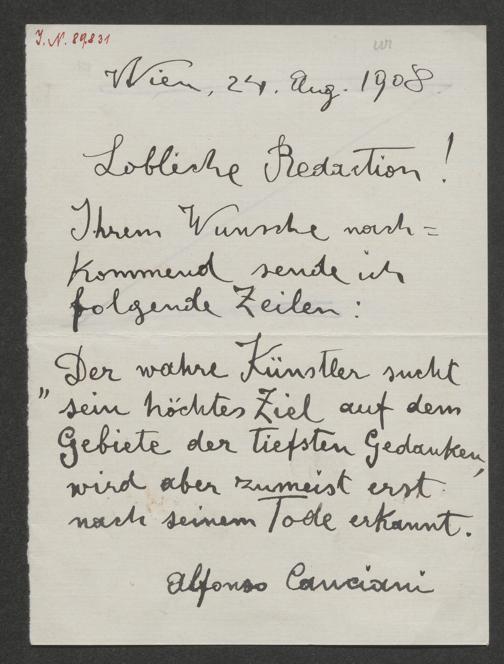 J. N. 89831
Wien, 24. Aug. 1908.
Lobliche Redaction!
Ihrem Wunsche nach=
kommend sende ich
folgende Zeilen:
Der wahre Künstler sucht
„sein höchtes Ziel auf dem
Gebiete der tiefsten Gedanken,
wird aber zumeist erst
nach seinem Tode erkannt.
Alfonso Canciani